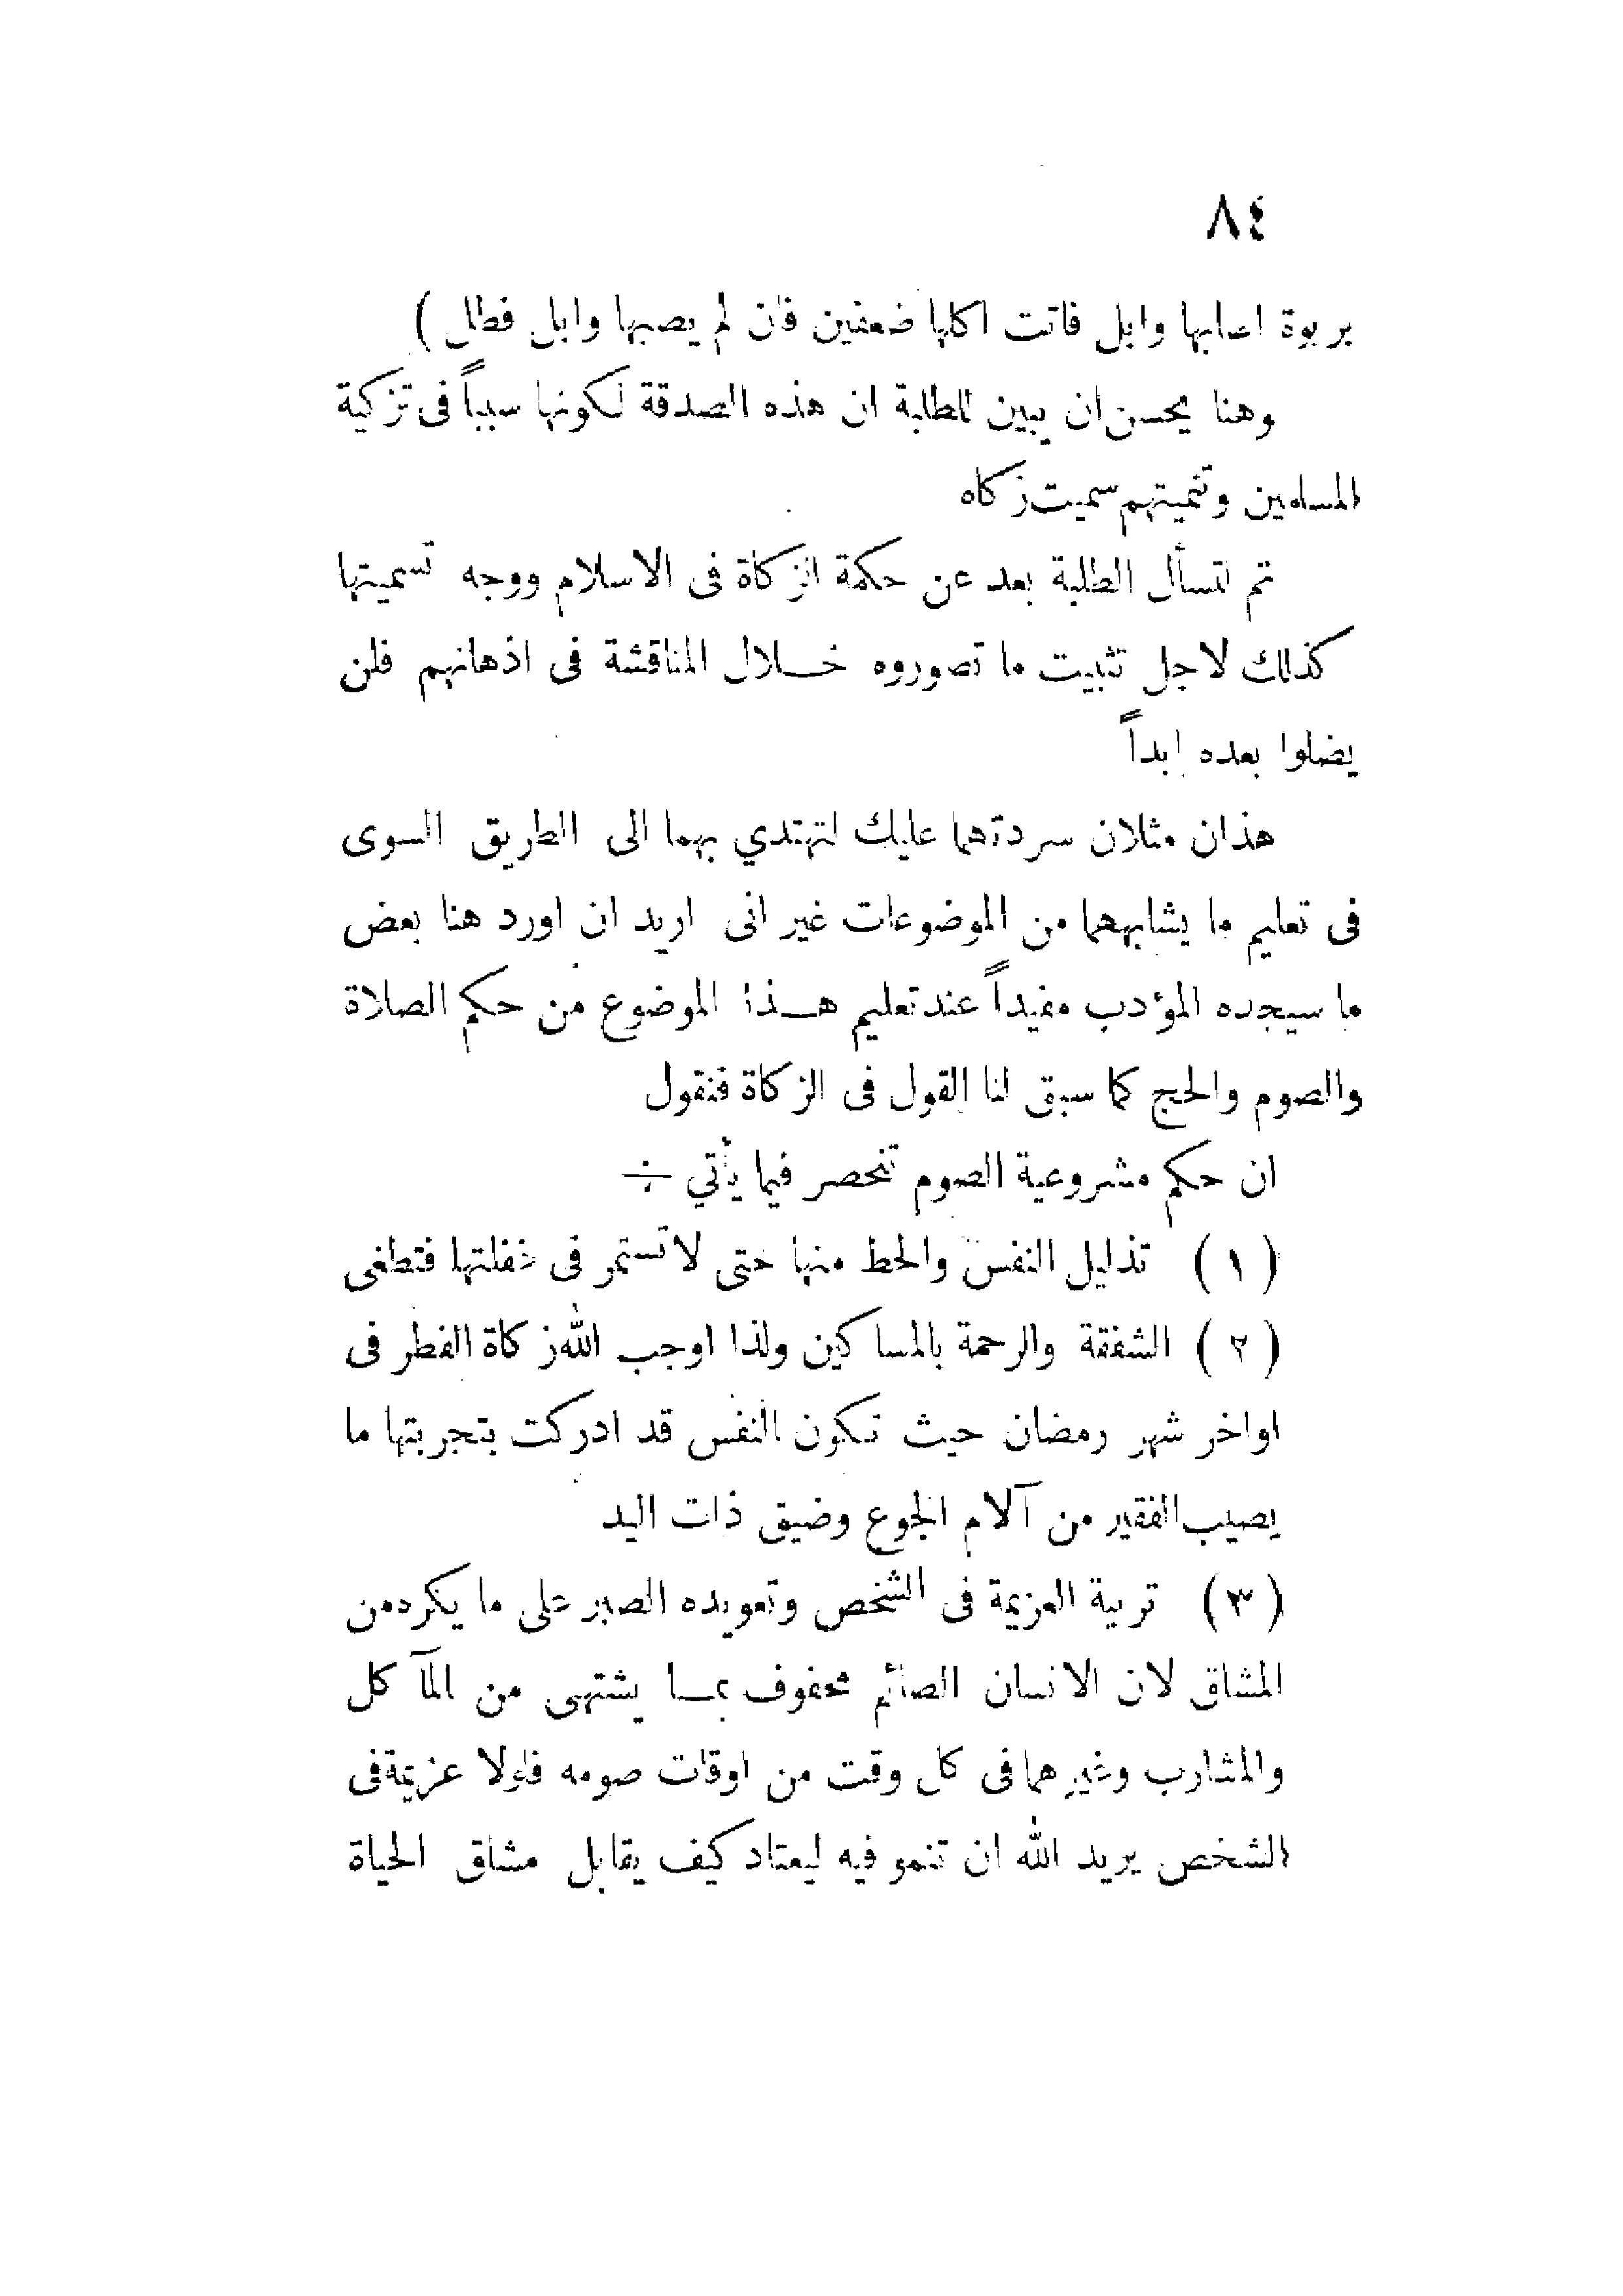 ٨٤
بربوة اصابها وابل فاتت اكلها ضعفين فان لم يصبها وابل فطل )
وهنا يحسن ان يبين للطلبة ان هذه الصدقة لكونها سبباً فى تزكية
المسلمين وتنميتهم سميت زكاه
ثم لتسأل الطلبة بعد عن حكمة الزكاة فى الاسلام ووجه تسميتها
كذلك لاجل تثبيت ما تصوروه خــلال المناقشة فى اذهانهم فلن
يضلوا بعده ابداً
هذان مثلان سردتهما عليك لتهتدي بهما الى الطريق السوى
فى تعليم ما يشابههما من الموضوعات غير انى اريد ان اورد هنا بعض
ما سيجده المؤدب مفيداً عند تعليم هــذا الموضوع من حكم الصلاة
والصوم والحج كما سبق لنا القول فى الزكاة فنقول
ان حكم مشروعية الصوم تنحصر فيما يأتي ÷
( ١ ) تذليل النفس والحط منها حتى لا تستمر فى غفلتها فتطغى
( ٢ ) الشفقة والرحمة بالمساكين ولذا اوجب الله زكاة الفطر فى
اواخر شهر رمضان حيث تكون النفس قد ادركت بتجربتها ما
يصيب الفقير من آلام الجوع وضيق ذات اليد
( ٣ ) تربية العزيمة فى الشخص وتعويده الصبر على ما يكره من
المشاق لان الانسان الصائم محفوف بمــا يشتهى من المآكل
والمشارب وغيرهما فى كل وقت من اوقات صومه فلولا عزيمة فى
الشخص يريد الله ان تنمو فيه ليعتاد كيف يقابل مشاق الحياة